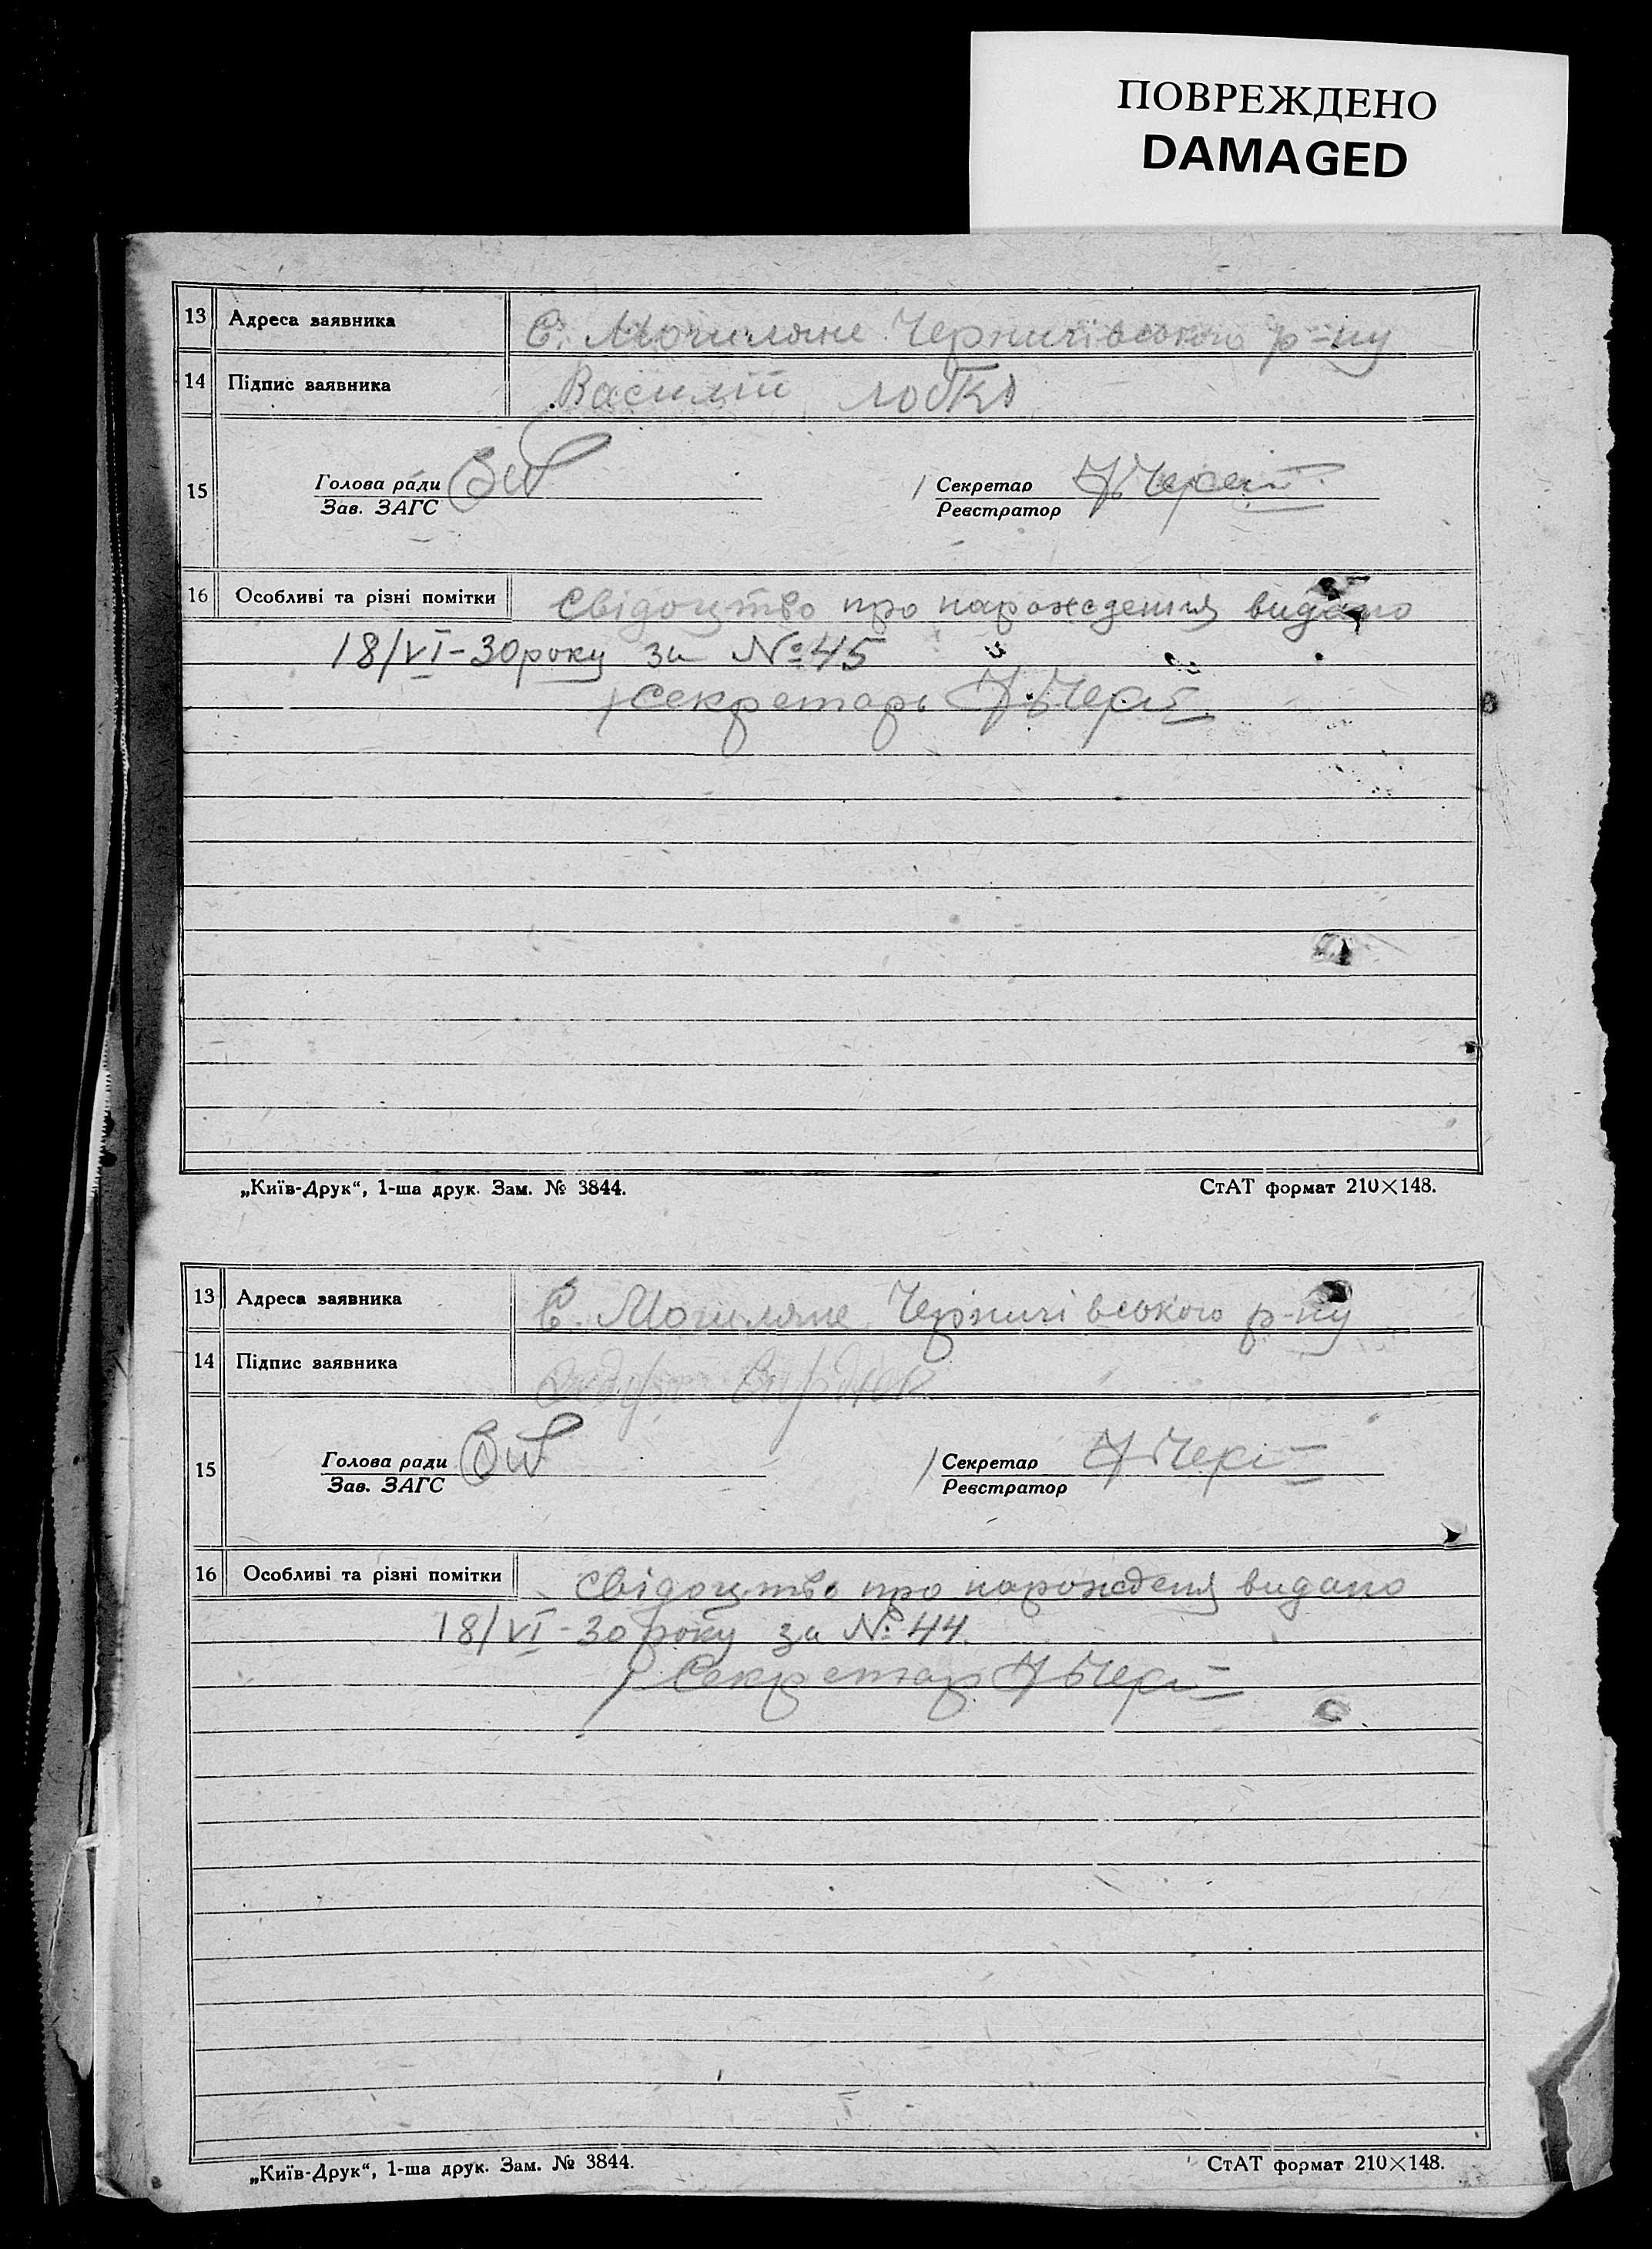 ПОВРЕЖДЕНО
DAMAGED
13 Адреса заявника С. Могиляне Черничівського р-ну
14 Підпис заявника Василій
15 Голова ради Секретар
Зав. ЗАГС Реєстратор
16 Особливі та різні помітки Свідоцтво про народження видано
18/VI-30 року за № 45
Секретарь
„Київ-Друк“, 1-ша друк. Зам. № 3844. СтАТ формат 210×148.
13 Адреса заявника С. Могиляне Черничівського р-ну
14 Підпис заявника
15 Голова ради Секретар
Зав. ЗАГС Реєстратор
16 Особливі та різні помітки Свідоцтво про нарожденя видано
18/VI-30 року за № 44.
Секретар
„Київ-Друк“, 1-ша друк. Зам. № 3844. СтАТ формат 210×148.